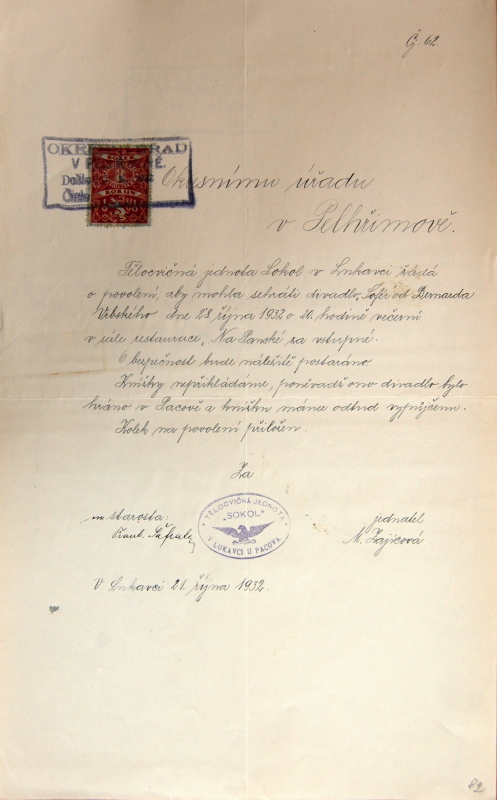 Čj. 62.
OKRESNÍ ÚŘAD
V P
Došlo
Číslo
KOLEK
Okresnímu úřadu
v Pelhřimově.
Tělocvičná jednota Sokol v Lukavci žádá
o povolení, aby mohla sehráti divadlo „Šofér" od Bernarda
Urbského dne 28. října 1932 o 20. hodině večerní
v sále restaurace „Na Panské za vstupné.
O bezpečnost bude náležitě postaráno.
Knížky nepřikládáme, poněvadž ono divadlo bylo
hráno v Pacově a knížku máme odtud vypůjčenu.
Kolek na povolení přiložen.
Za
starosta:
TĚLOCVIČNÁ JEDNOTA
„SOKOL"
V LUKAVCI U PACOVA
jednatel
M. Zajícová
V Lukavci 21. října 1932.
82